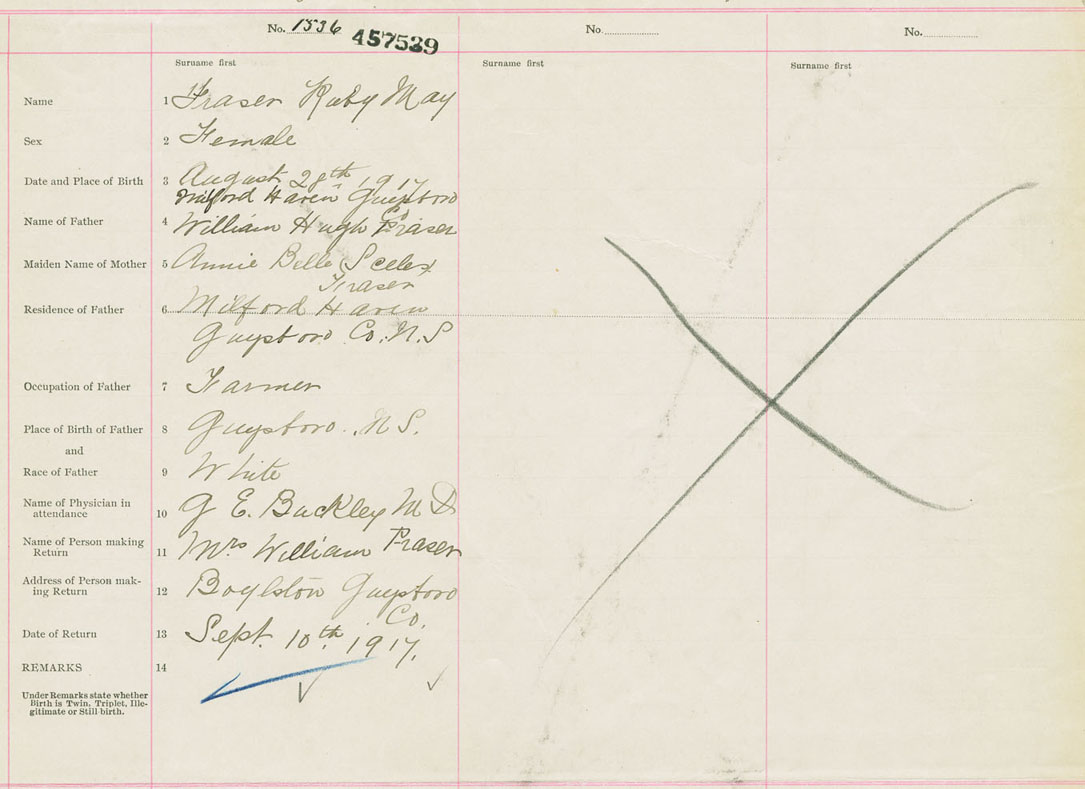 No. 1536 457539 No. No.
Surname first Surname first Surname first
Name 1 Fraser Ruby May
Sex 2 Female
Date and Place of Birth 3 August 28th 1917
Milford Haven Guysboro
Co
Name of Father 4 William Hugh Fraser
Maiden Name of Mother 5 Annie Belle
Fraser
Residence of Father 6 Milford Haven
Guysboro Co. N.S
Occupation of Father 7 Farmer
Place of Birth of Father 8 Guysboro. N S.
and
Race of Father 9 White
Name of Physician in
attendance 10 G E. Buckley M D
Name of Person making
Return 11 Mrs William Fraser
Address of Person mak-
ing Return 12 Boylston Guysboro
Co.
Date of Return 13 Sept. 10th. 1917.
REMARKS 14
Under Remarks state whether
Birth is Twin, Triplet, Ille-
gitimate or Still birth.